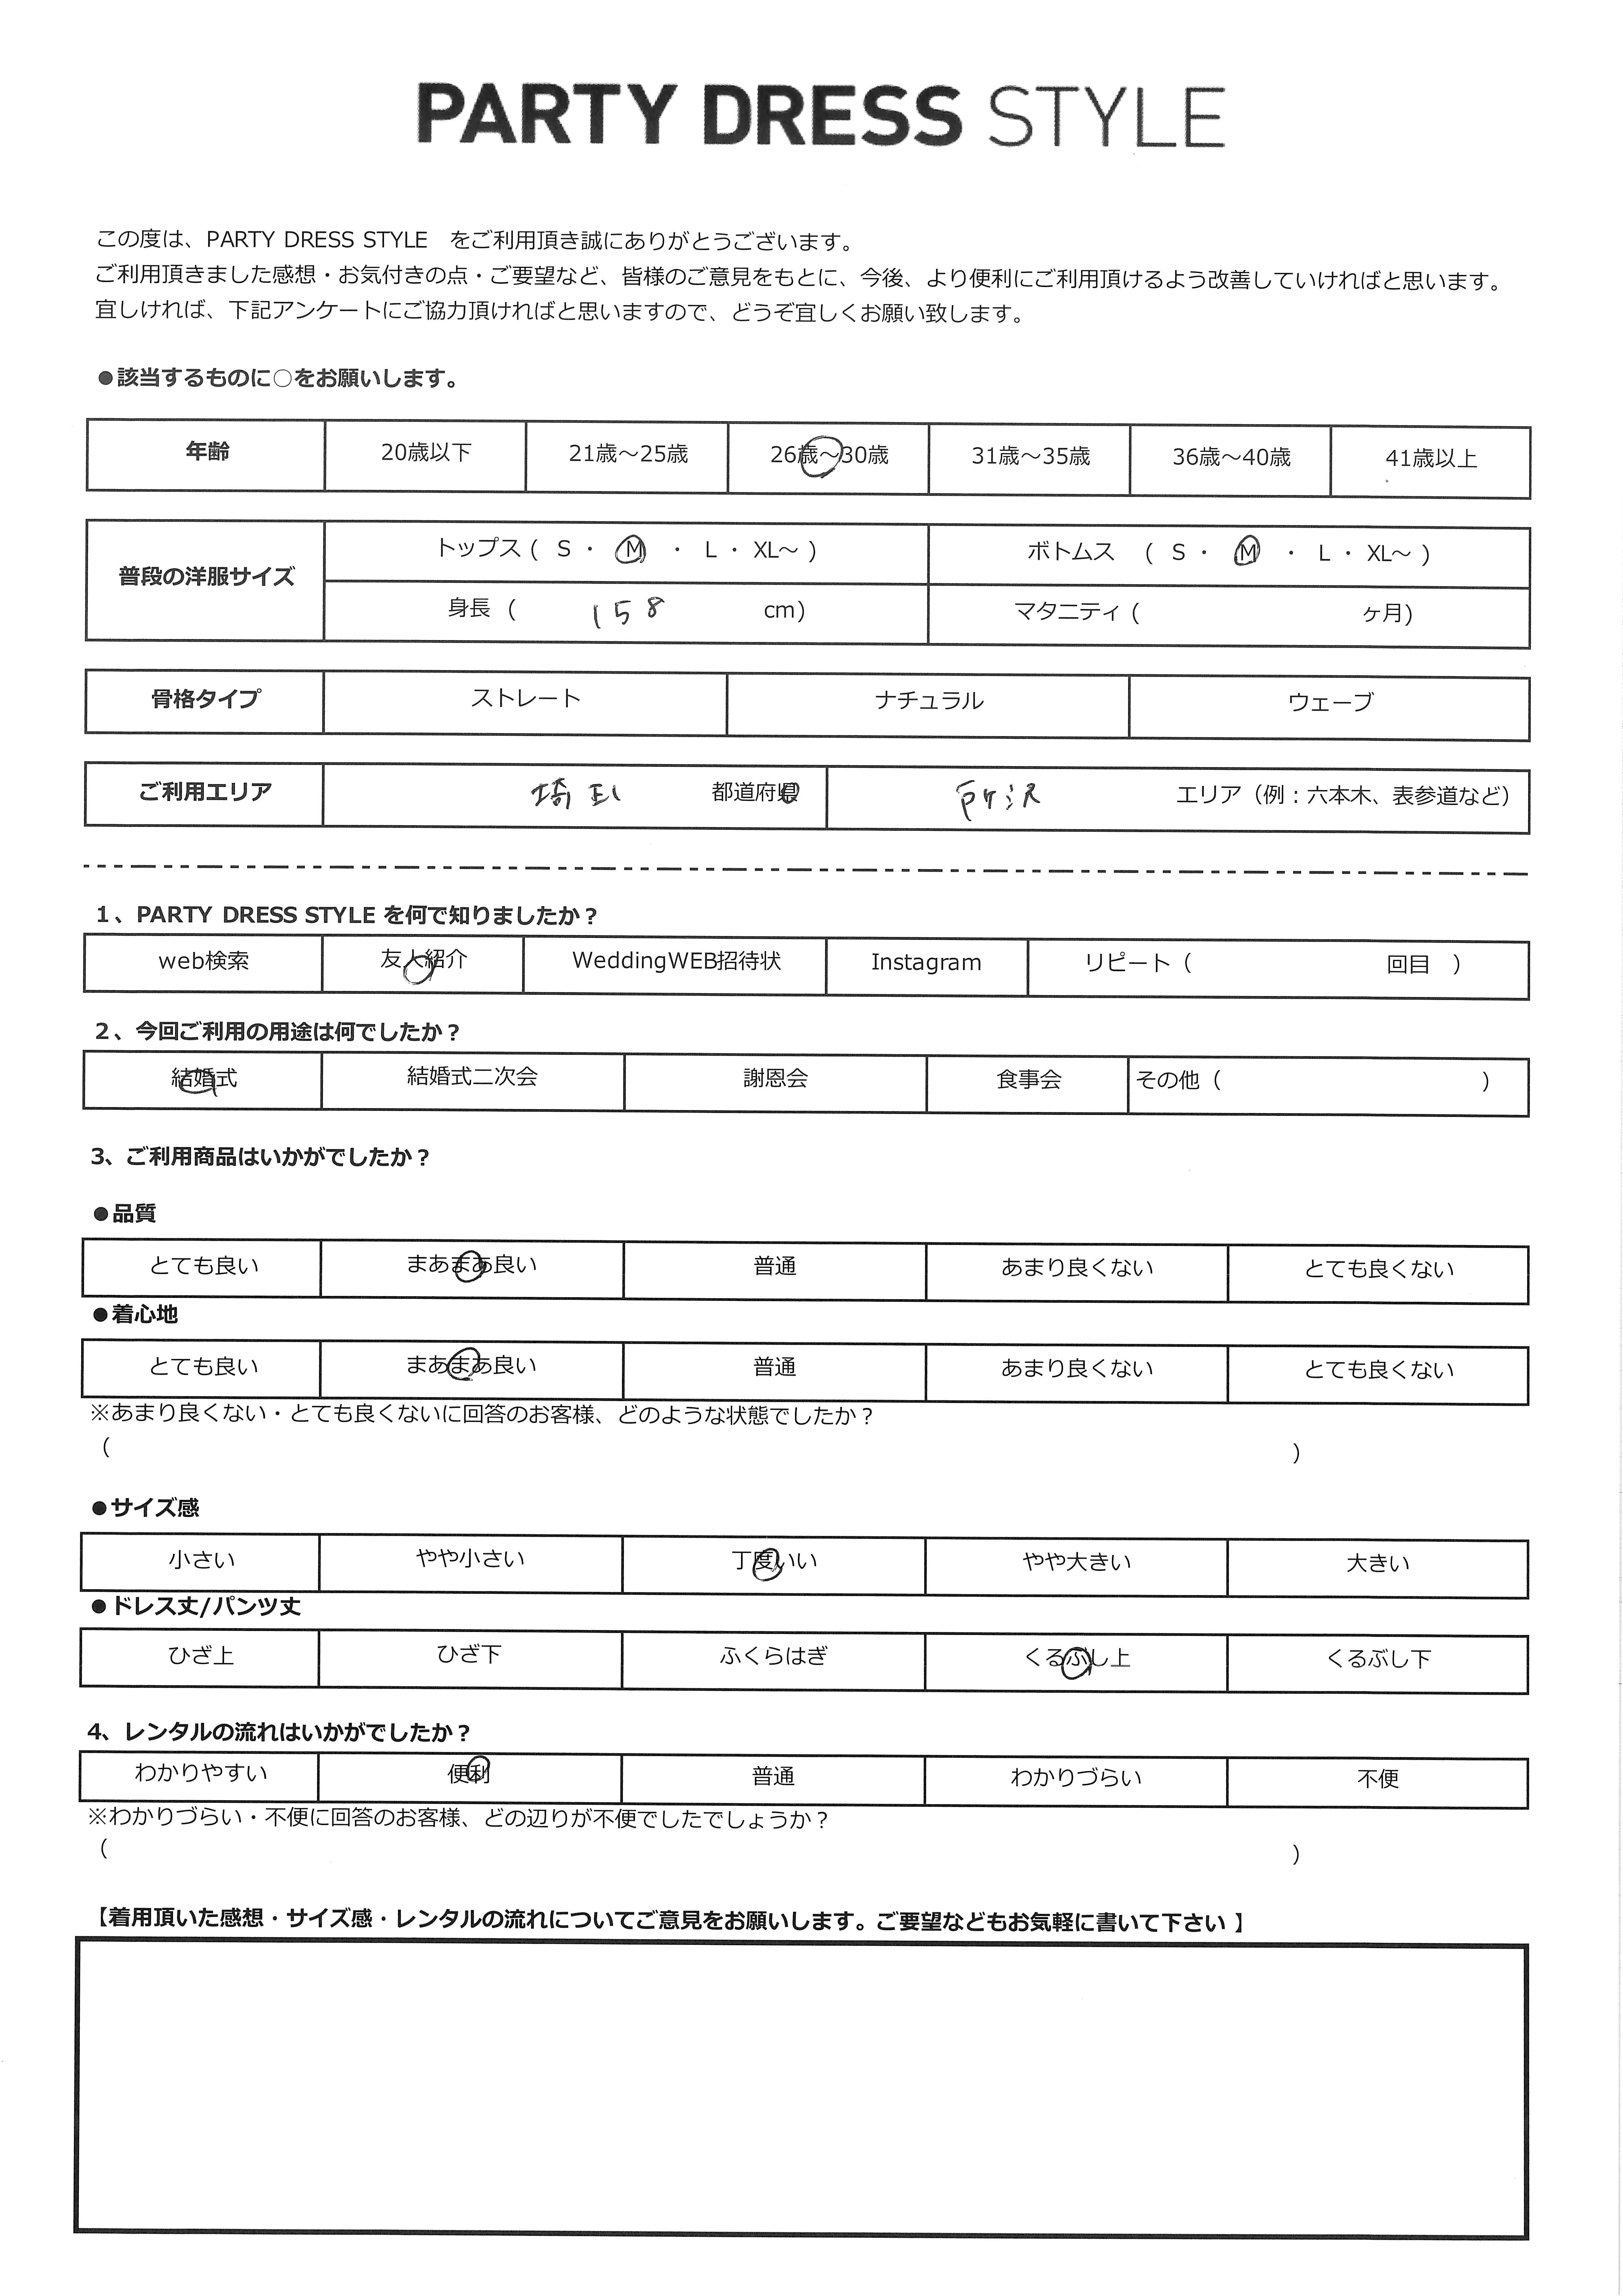 PARTY DRESS STYLE
この度は、PARTY DRESS STYLE　をご利用頂き誠にありがとうございます。
ご利用頂きました感想・お気付きの点・ご要望など、皆様のご意見をもとに、今後、より便利にご利用頂けるよう改善していければと思います。
宜しければ、下記アンケートにご協力頂ければと思いますので、どうぞ宜しくお願い致します。
●該当するものに○をお願いします。
年齢 20歳以下 21歳～25歳 26歳～30歳 31歳～35歳 36歳～40歳 41歳以上
普段の洋服サイズ トップス ( S ・ M ・ L ・ XL～ ) ボトムス ( S ・ M ・ L ・ XL～ )
身長 ( 158 cm) マタニティ ( ヶ月)
骨格タイプ ストレート ナチュラル ウェーブ
ご利用エリア 埼玉 都道府県 所沢 エリア（例：六本木、表参道など）
1、PARTY DRESS STYLE を何で知りましたか？
web検索 友人紹介 WeddingWEB招待状 Instagram リピート（ 回目 ）
2、今回ご利用の用途は何でしたか？
結婚式 結婚式二次会 謝恩会 食事会 その他（ ）
3、ご利用商品はいかがでしたか？
●品質
とても良い まあまあ良い 普通 あまり良くない とても良くない
●着心地
とても良い まあまあ良い 普通 あまり良くない とても良くない
※あまり良くない・とても良くないに回答のお客様、どのような状態でしたか？
（ ）
●サイズ感
小さい やや小さい 丁度いい やや大きい 大きい
●ドレス丈/パンツ丈
ひざ上 ひざ下 ふくらはぎ くるぶし上 くるぶし下
4、レンタルの流れはいかがでしたか？
わかりやすい 便利 普通 わかりづらい 不便
※わかりづらい・不便に回答のお客様、どの辺りが不便でしたでしょうか？
（ ）
【着用頂いた感想・サイズ感・レンタルの流れについてご意見をお願いします。ご要望などもお気軽に書いて下さい 】